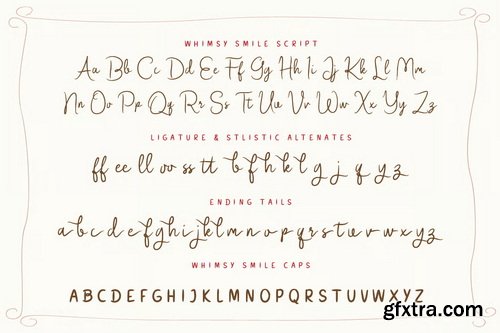 WHIMSY SMILE SCRIPT
Aa Bb Cc Dd Ee Ff Gg Hh Ii Jj Kk Ll Mm
Nn Oo Pp Qq Rr Ss Tt Uu Vv Ww Xx Yy Zz
LIGATURE & STLISTIC ALTENATES
ff ee ll oo ss tt b f h k l g j q y z
ENDING TAILS
a b c d e f g h i j k l m n o p q r s t u v w x y z
WHIMSY SMILE CAPS
A B C D E F G H I J K L M N O P Q R S T U V W X Y Z
gfxtra.com